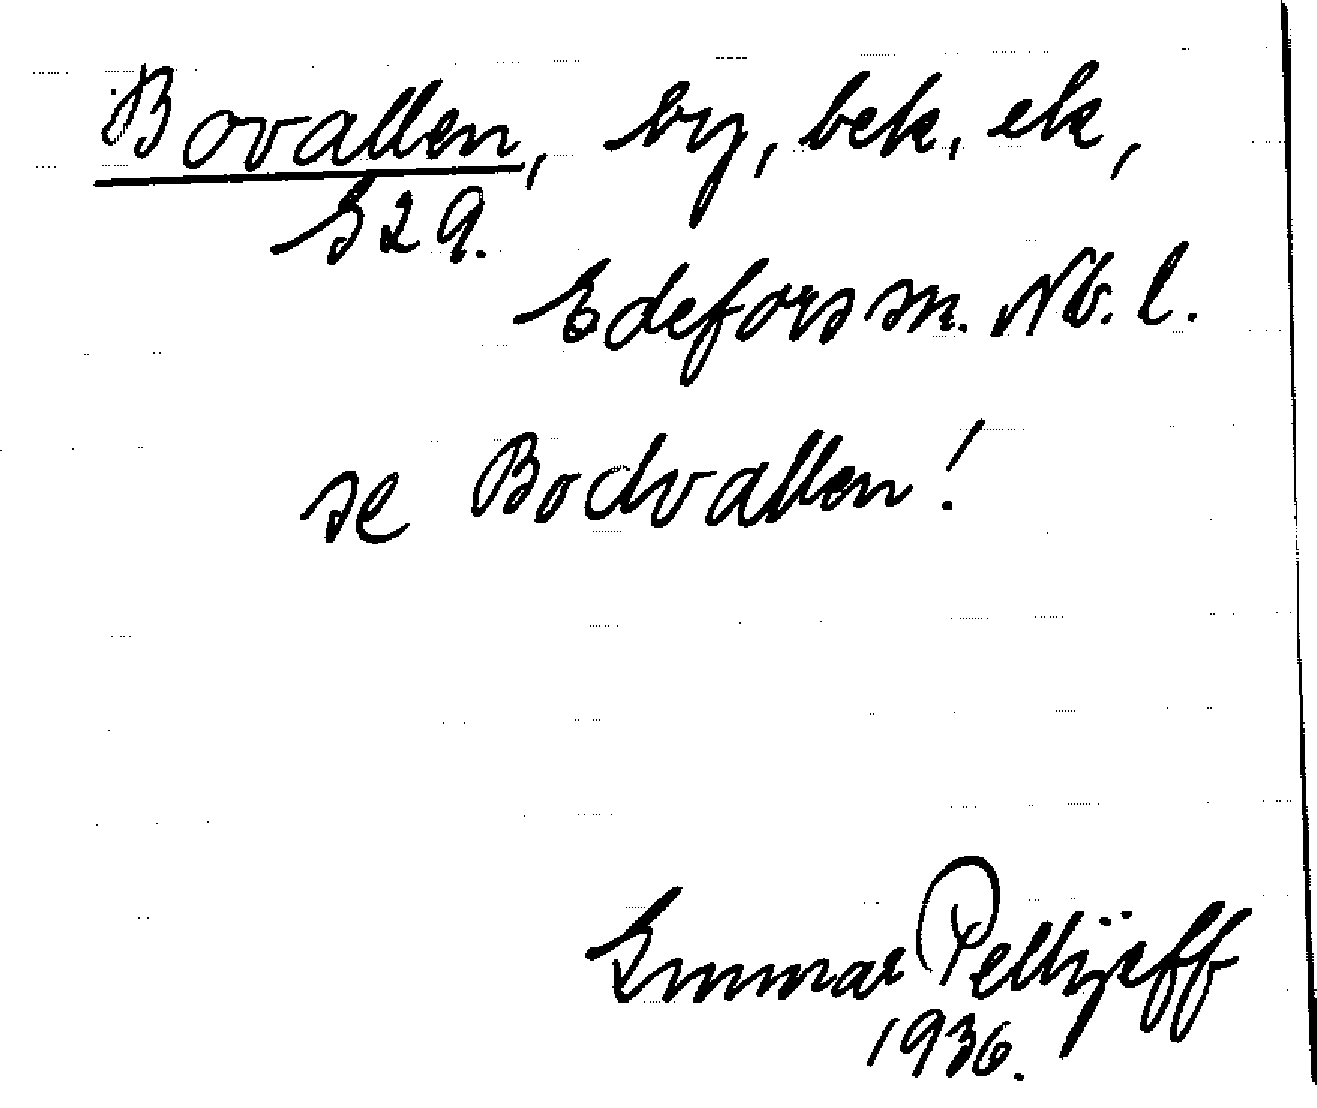 Bovallen, by, bek. ek,
S29.
Edefors sn. Nb. l.
se Bodvallen!
Gunnar Pellijeff
1936.